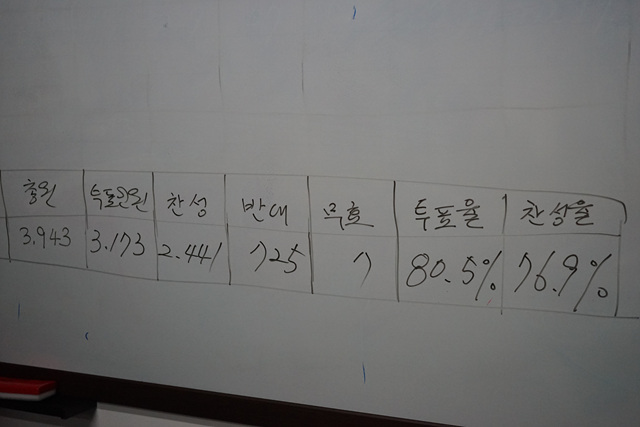 총원 투표인원 찬성 반대 무효 투표율 찬성율
3.943 3.173 2.441 725 7 80.5% 76.9%